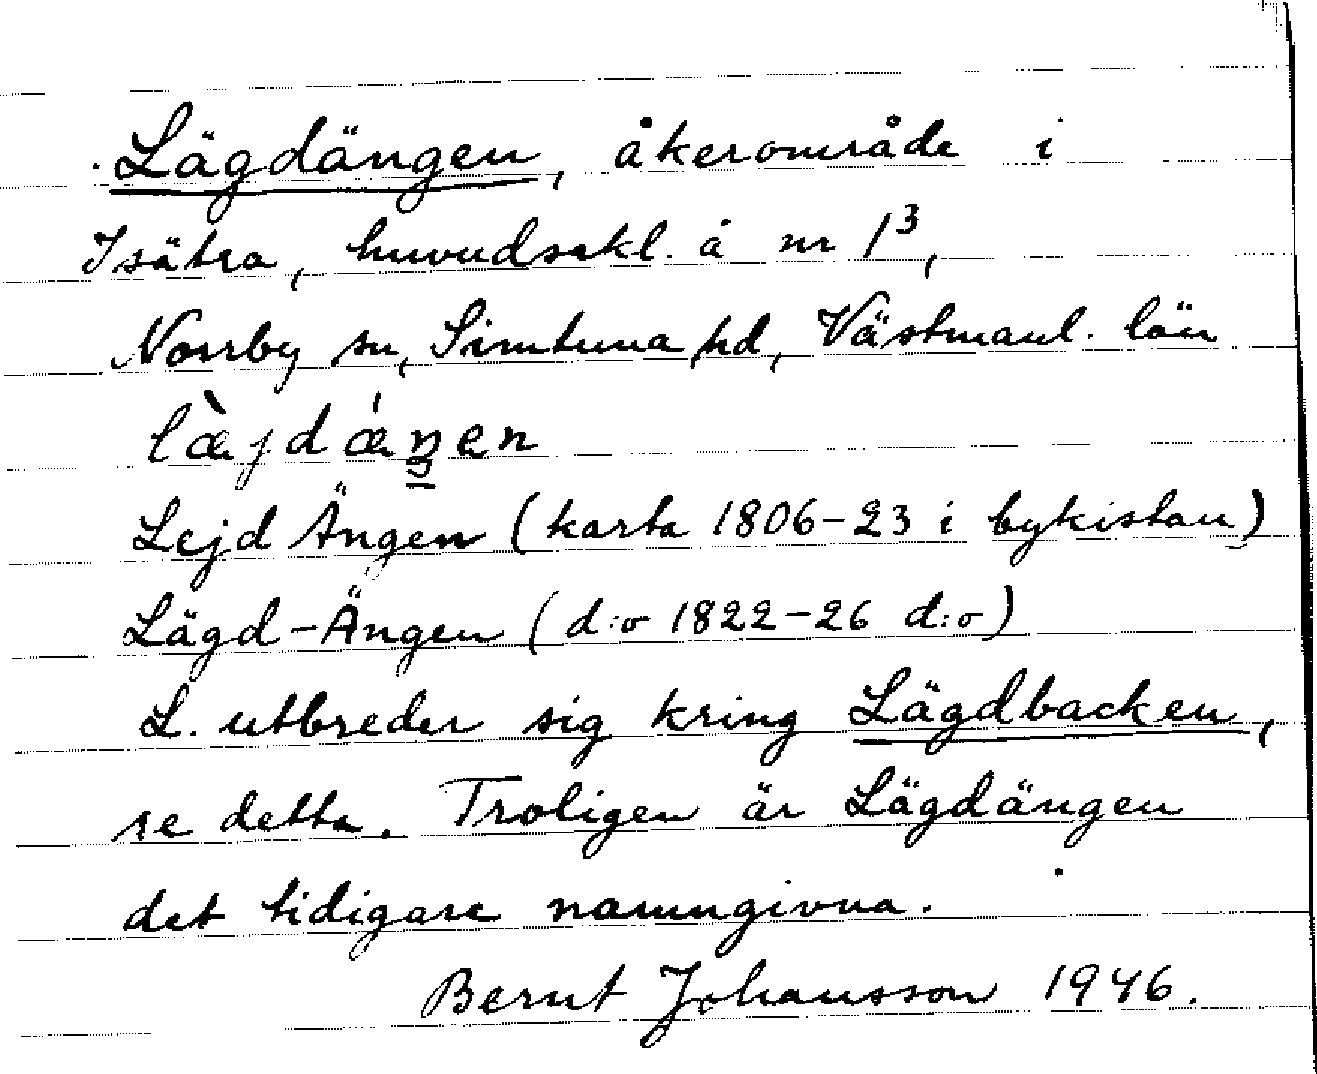 Lägdängen, åkerområde i
Isätra, huvudsakl. å nr 1³,
Norrby sn, Simtuna hd, Västmanl. län
læ̀jdǽŋen
Lejd Ängen (karta 1806-23 i bykistan)
Lägd-Ängen (d:o 1822-26 d:o)
L. utbreder sig kring Lägdbacken,
se detta. Troligen är Lägdängen
det tidigare namngivna.
Bernt Johansson 1946.